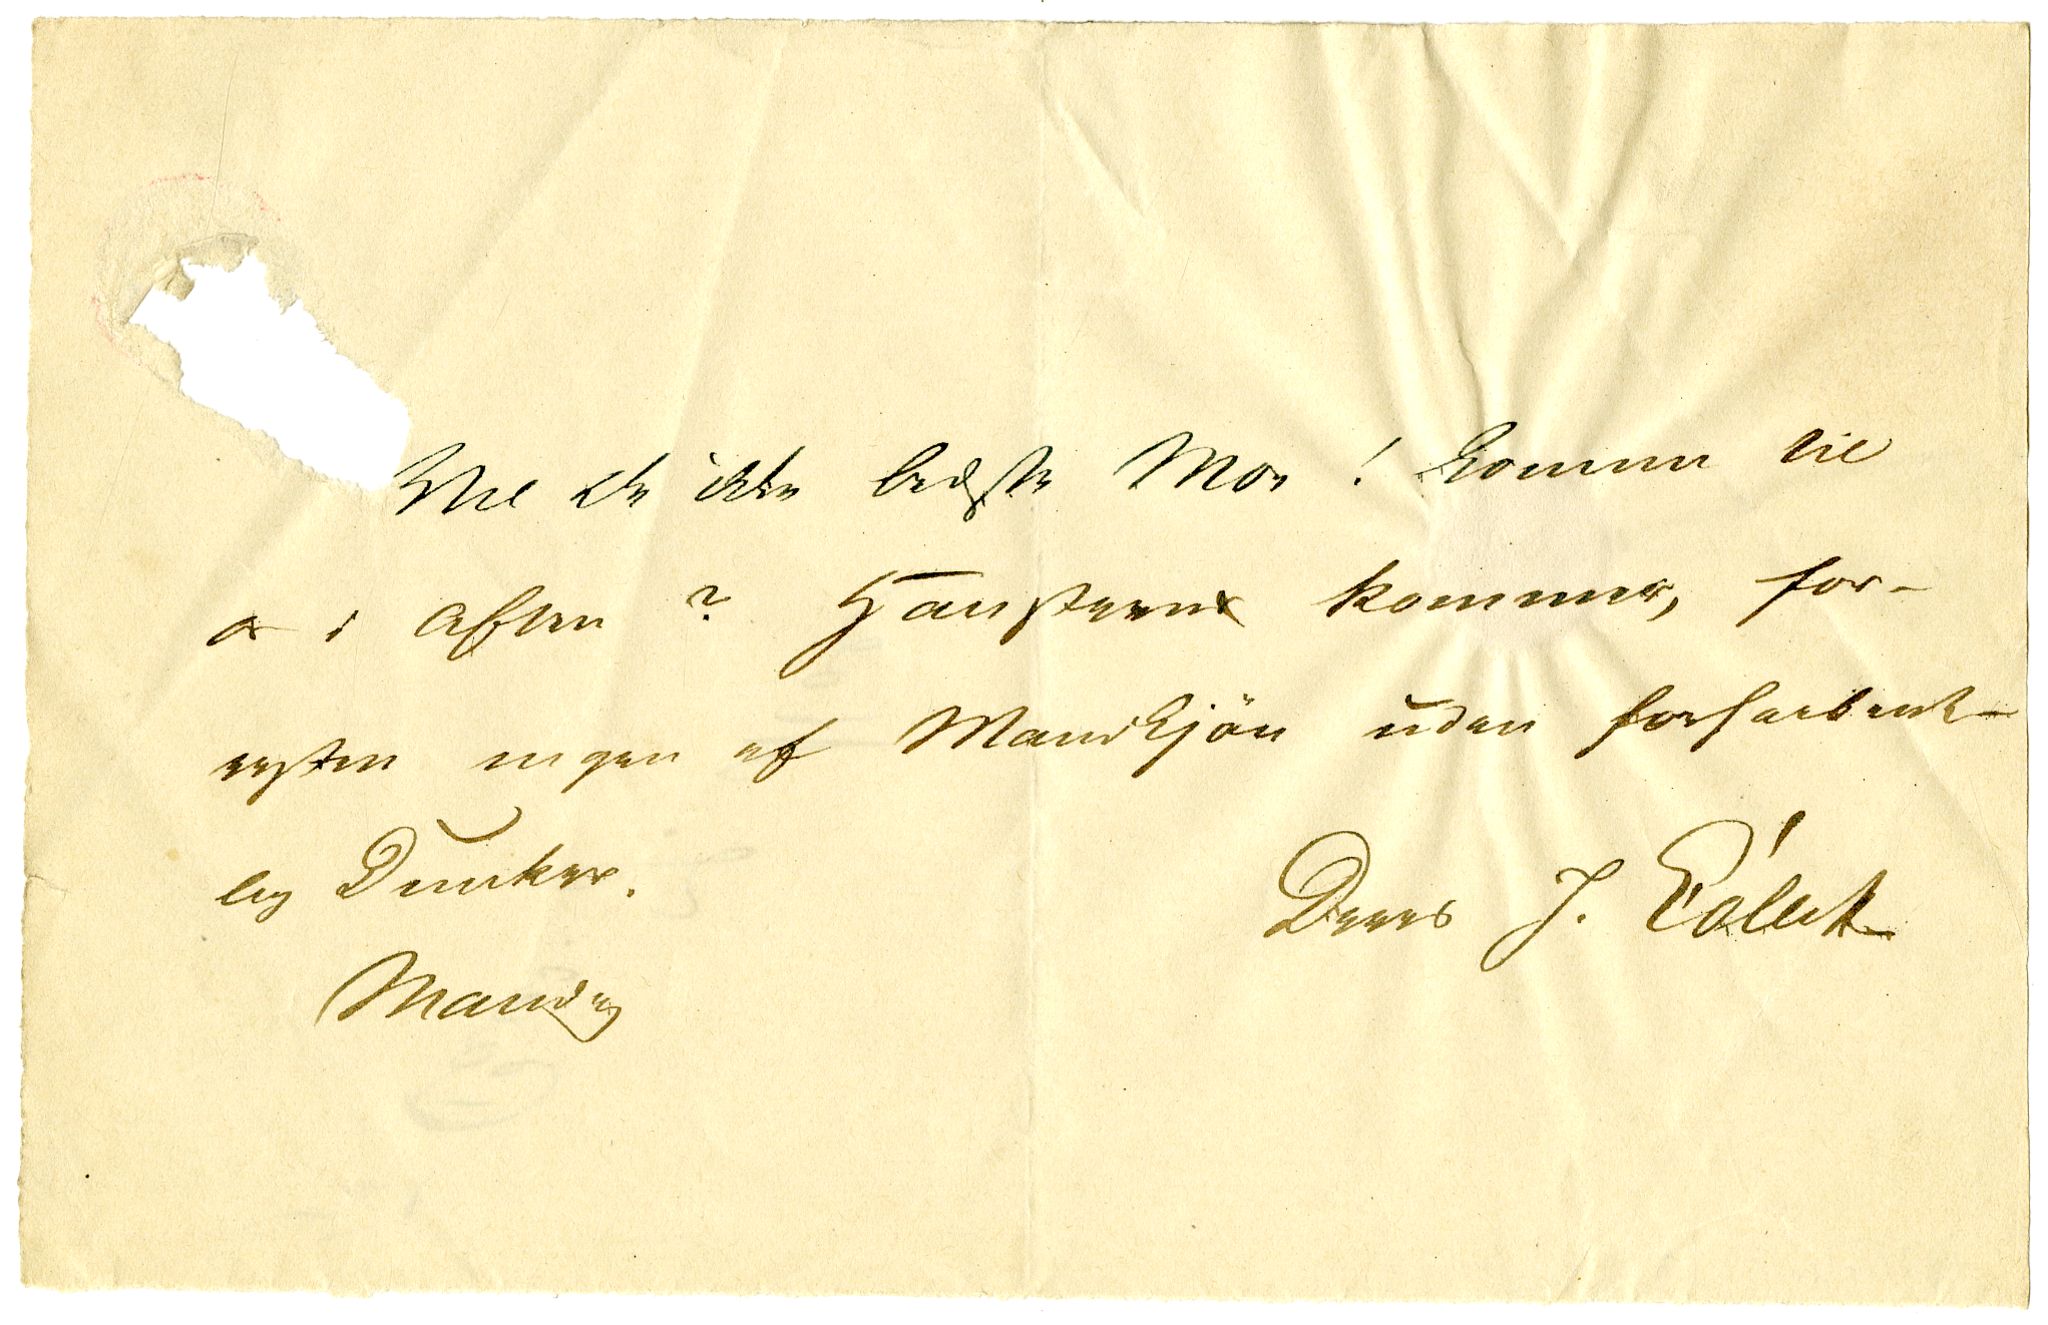 Vil De ikke bedste Moe! komme til
os i Aften? Hansteens kommer, for-
resten ingen af Mandkjön uden forhaabent-
lig Dunker.
Deres J. Collett
Mandag